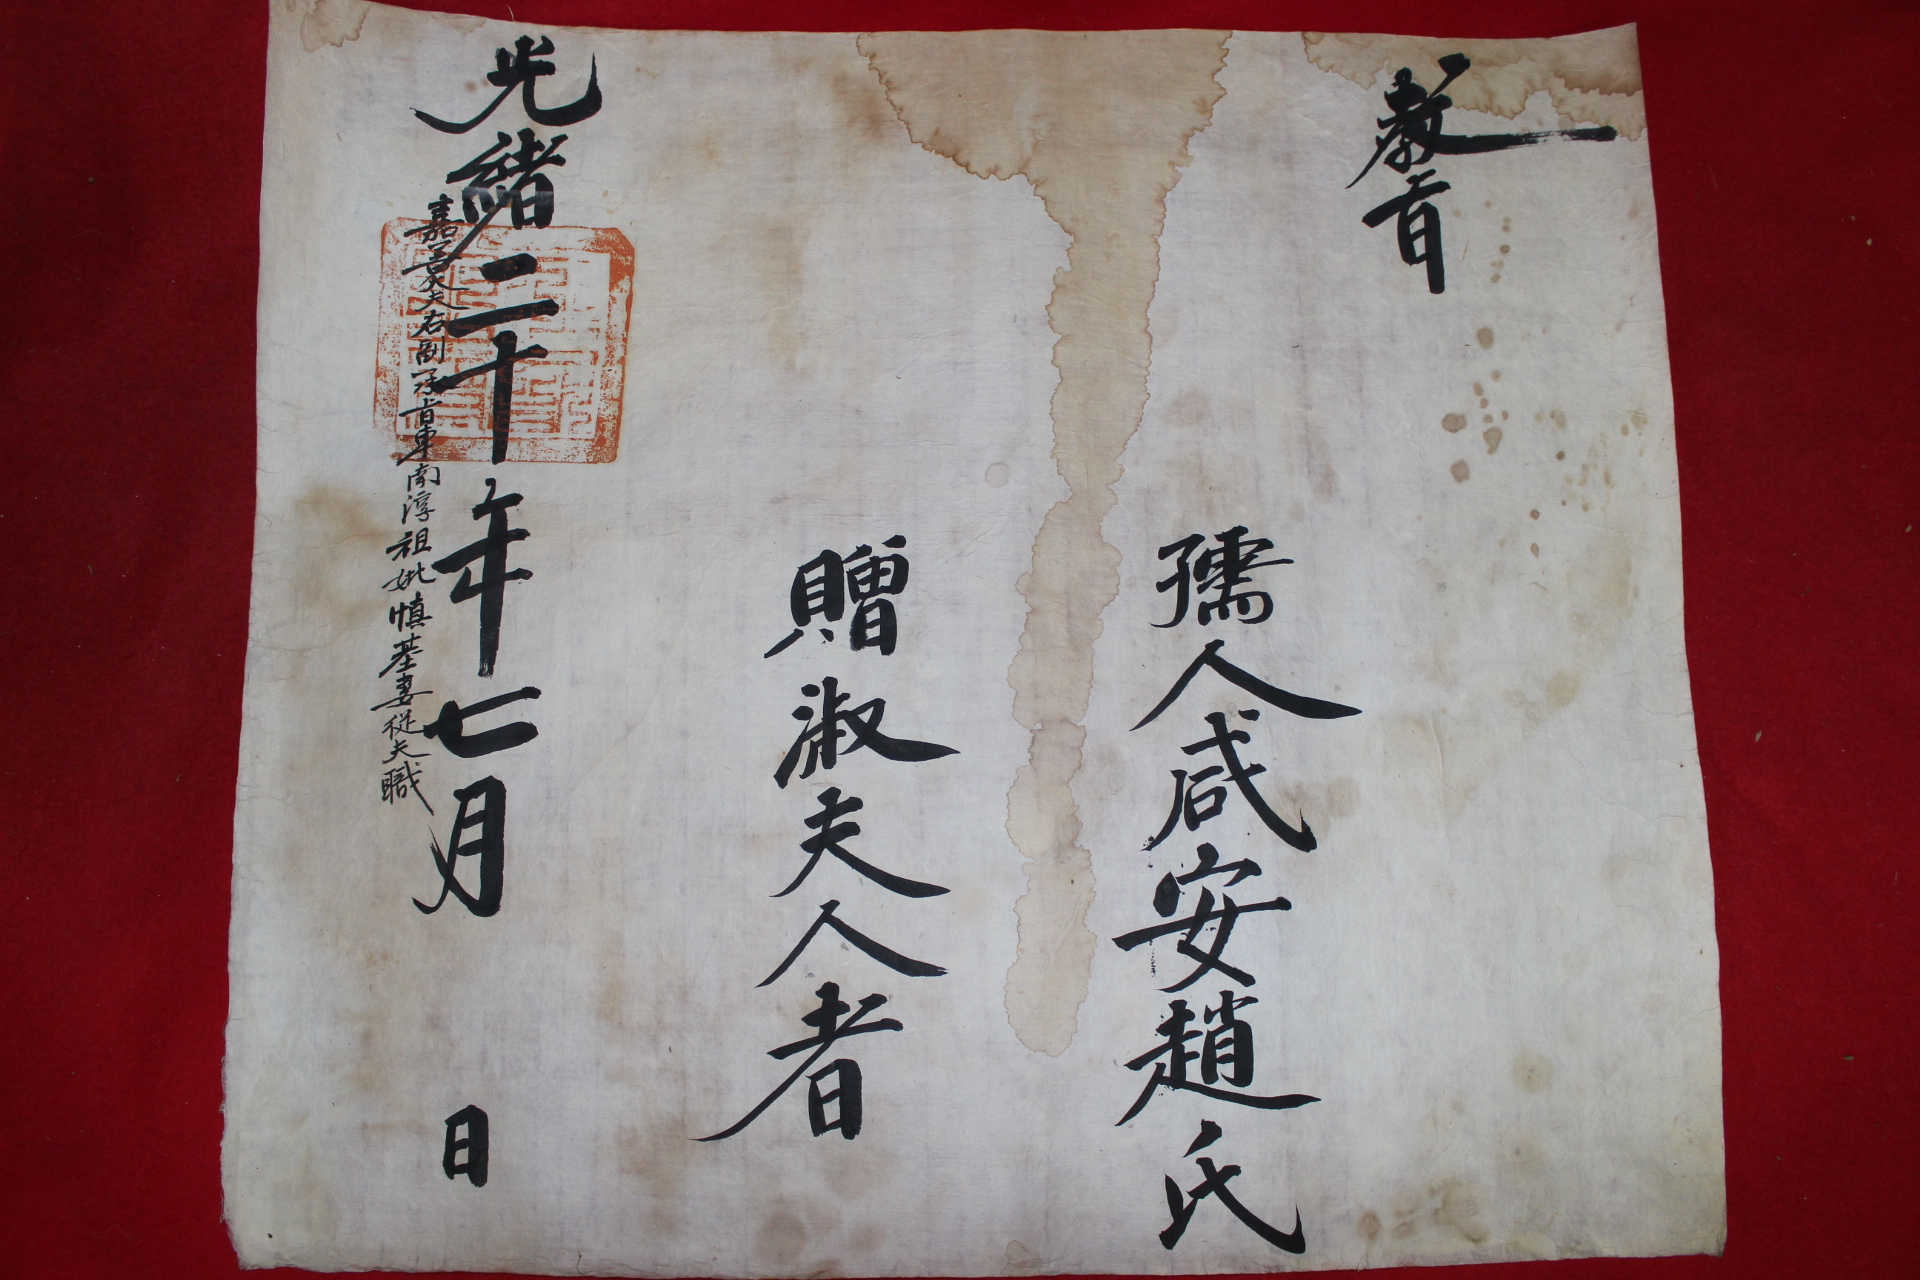 教旨
孺人咸安趙氏
贈淑夫人者
光緒二十年七月　日
嘉善大夫右副承旨車南淳祖妣慎基妻從夫職